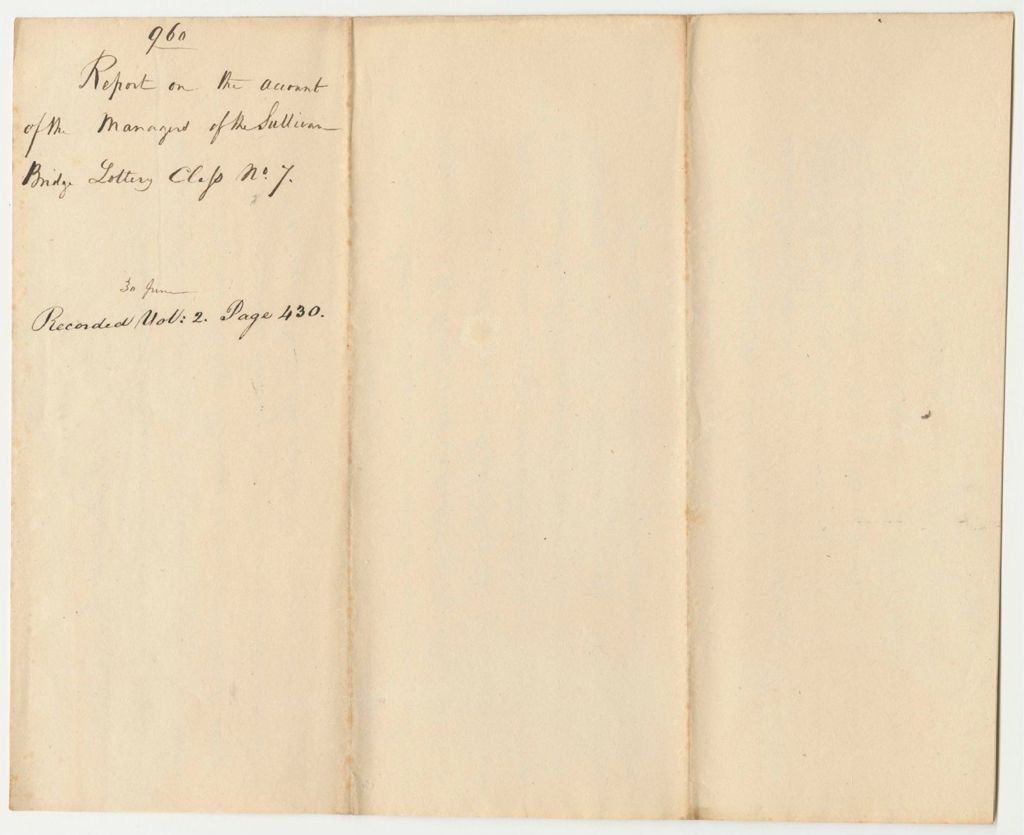 960
Report on the account
of the Managers of the Sullivan
Bridge Lottery Class No. 7.
30 June
Recorded Vol: 2. Page 430.